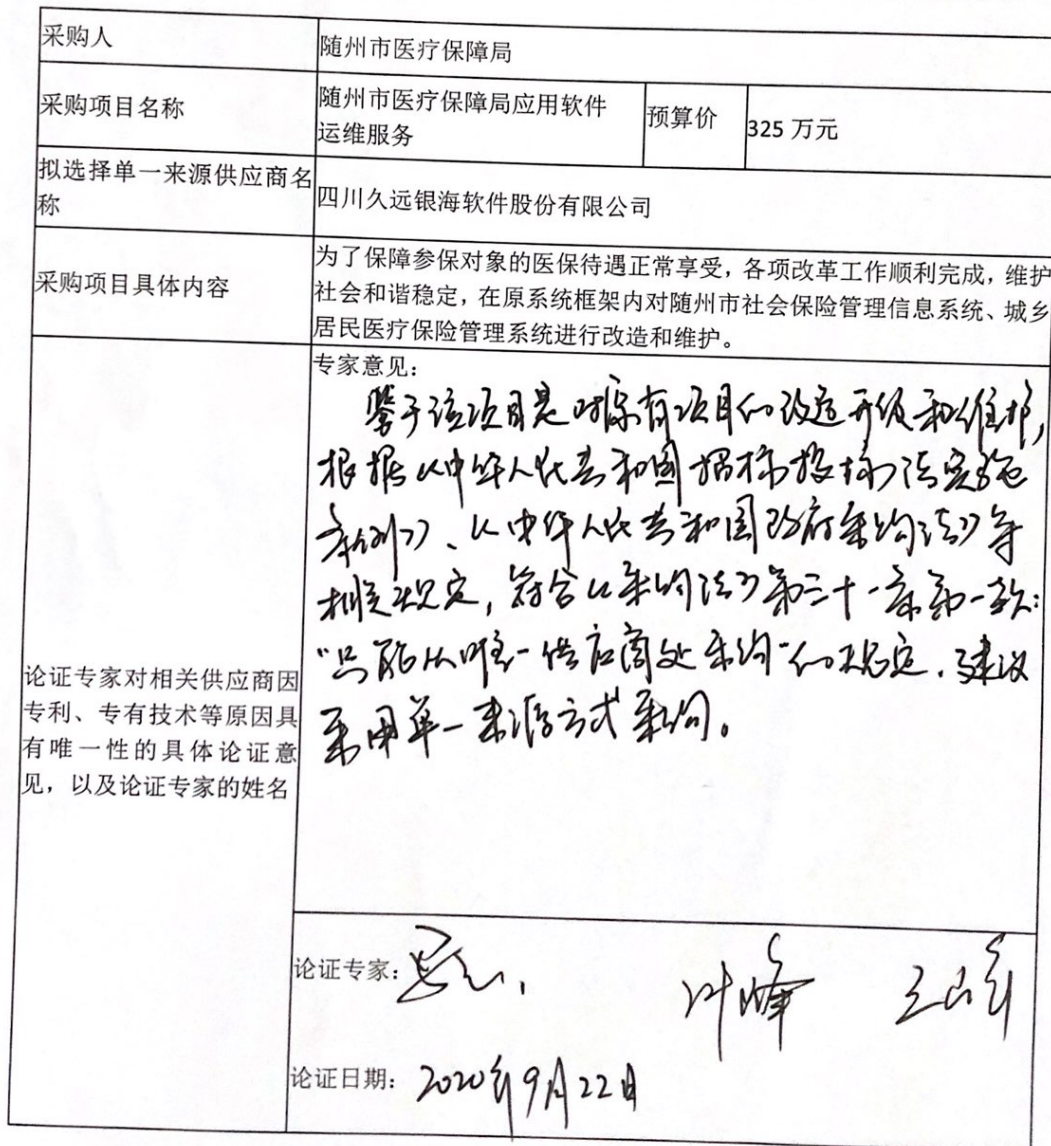 采购人
随州市医疗保障局
采购项目名称
随州市医疗保障局应用软件
运维服务
预算价
325 万元
拟选择单一来源供应商名
称
四川久远银海软件股份有限公司
采购项目具体内容
为了保障参保对象的医保待遇正常享受，各项改革工作顺利完成，维护
社会和谐稳定，在原系统框架内对随州市社会保险管理信息系统、城乡
居民医疗保险管理系统进行改造和维护。
论证专家对相关供应商因
专利、专有技术等原因具
有唯一性的具体论证意
见，以及论证专家的姓名
专家意见：
鉴于该项目是对原有项目的改造升级和维护，
根据《中华人民共和国招标投标法实施
条例》、《中华人民共和国政府采购法》等
相关规定，符合《采购法》第三十一条第一款：
“只能从唯一供应商处采购”的规定，建议
采用单一来源方式采购。
论证专家：
叶峰
论证日期：2020年9月22日